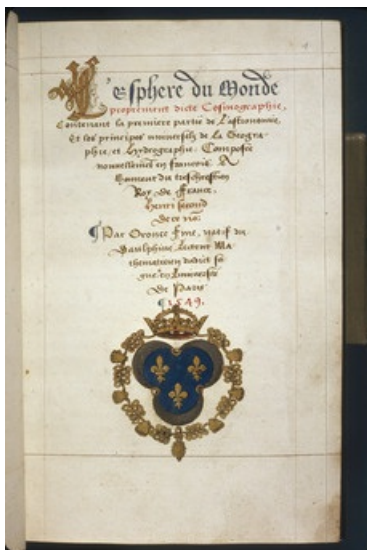 Le sphere du Monde
proprement dicte Cosmographie,
Contenant la premiere partie de Lastronomie,
Et les principes universelz de La Geogra-
phie, et Hydrographie. Composée
nouvellement en francois. A
honneur du treschrestien
Roy de France,
Henri second
de ce nō:
¶ Par Oronce Fine, natif du
Daulphiné, Lecteur Ma-
thematicien dudict sei-
gneur en Luniversité
de Paris
¶ 1549.